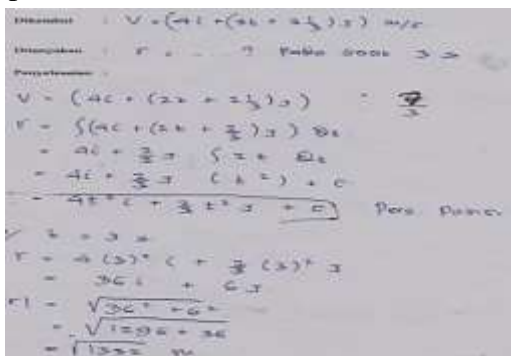 Diketahui : V = (4i + (2t + 2⅔) j) m/s
Ditanyakan : r = .... ? Pada saat 3 s
Penyelesaian :
V = (4i + (2t + 2⅔) j)
r = ∫(4i + (2t + ⅔) j)
= 4i + ⅔ j ∫ 2t
= 4i + ⅔ j (t²) + c
= 4t² i + ⅔ t² j + c Pers. Posisi
t = 3 s
r = 4 (3)² i + ⅔ (3)² j
= 36 i + 6 j
= √36² + 6²
= √1296 + 36
= √1332 m